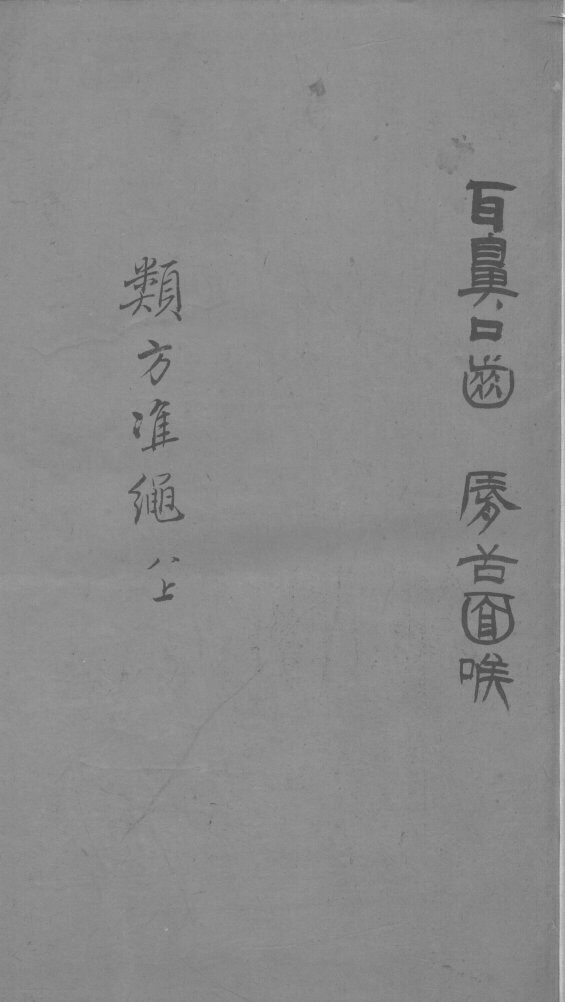 目鼻口齒　唇舌面喉
類方準繩八上